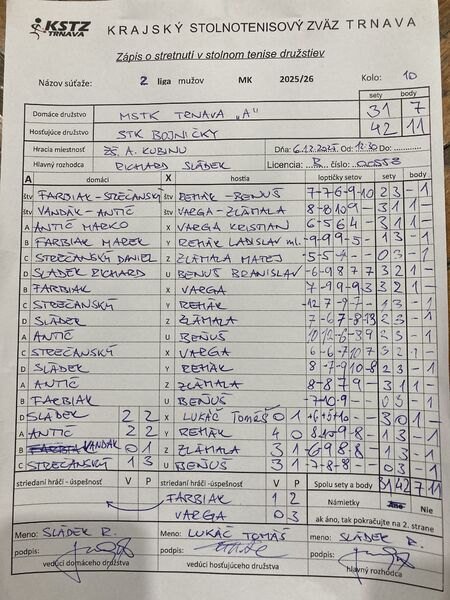 KSTZ
TRNAVA
KRAJSKÝ STOLNOTENISOVÝ ZVÄZ TRNAVA
Zápis o stretnutí v stolnom tenise družstiev
Názov súťaže: 2 liga mužov MK 2025/26 Kolo: 10
sety body
Domáce družstvo MSTK TRNAVA "A" 31 7
Hosťujúce družstvo STK BOJNIČKY 42 11
Hracia miestnosť ZŠ. A. KUBINU Dňa: 6.12.2025 Od: 12:30 Do:
Hlavný rozhodca RICHARD SLÁDEK Licencia: B číslo:
A domáci X hostia loptičky setov sety body
štv FARBIAK-STREČANSKÝ štv REMÁK-BENUŠ 7-7 6-9-10 2 3 - 1
štv VANDÁK-ANTIČ štv VARGA-ZLÁMALA 8-8 10 9 - 3 1 1 -
A ANTIČ MARKO X VARGA KRISTIAN 6-5 6 4 - 3 1 1 -
B FARBIAK MAREK Y REMÁK LADISLAV ml. -9-9 9-5 - 1 3 - 1
C STREČANSKÝ DANIEL Z ZLÁMALA MATEJ -5-5-4 - - 0 3 - 1
D SLÁDEK RICHARD U BENUŠ BRANISLAV -6-9 8 7 7 3 2 1 -
B FARBIAK X VARGA 7-9 9-9 3 3 2 1 -
C STREČANSKÝ Y REMÁK -12 7-9-7 - 1 3 - 1
D SLÁDEK Z ZLÁMALA 7-6 7-8-13 2 3 - 1
A ANTIČ U BENUŠ 10 12-6-3 9 2 3 - 1
C STREČANSKÝ X VARGA 6-6-7 10 7 3 2 1 -
D SLÁDEK Y REMÁK 8-7-9 10-8 2 3 - 1
A ANTIČ Z ZLÁMALA 8-8 7 9 - 3 1 1 -
B FARBIAK U BENUŠ -7-10-9 - - 0 3 - 1
D SLÁDEK 2 2 X LUKÁČ TOMÁŠ 0 1 +6+5+10 - - 3 0 1 -
A ANTIČ 2 2 Y REMÁK 4 0 8-10-9-8 - 1 3 - 1
B VANDÁK 0 1 Z ZLÁMALA 3 1 - 1 3 - 1
C STREČANSKÝ 1 3 U BENUŠ 3 1 - 0 3 - 1
striedaní hráči - úspešnosť V P striedaní hráči - úspešnosť V P Spolu sety a body 31 42 7 11
FARBIAK 1 2 Námietky Áno Nie
VARGA 0 3 ak áno, tak pokračujte na 2. strane
Meno: SLÁDEK R. Meno: LUKÁČ TOMÁŠ Meno: SLÁDEK R.
podpis: podpis: podpis:
vedúci domáceho družstva vedúci hosťujúceho družstva hlavný rozhodca